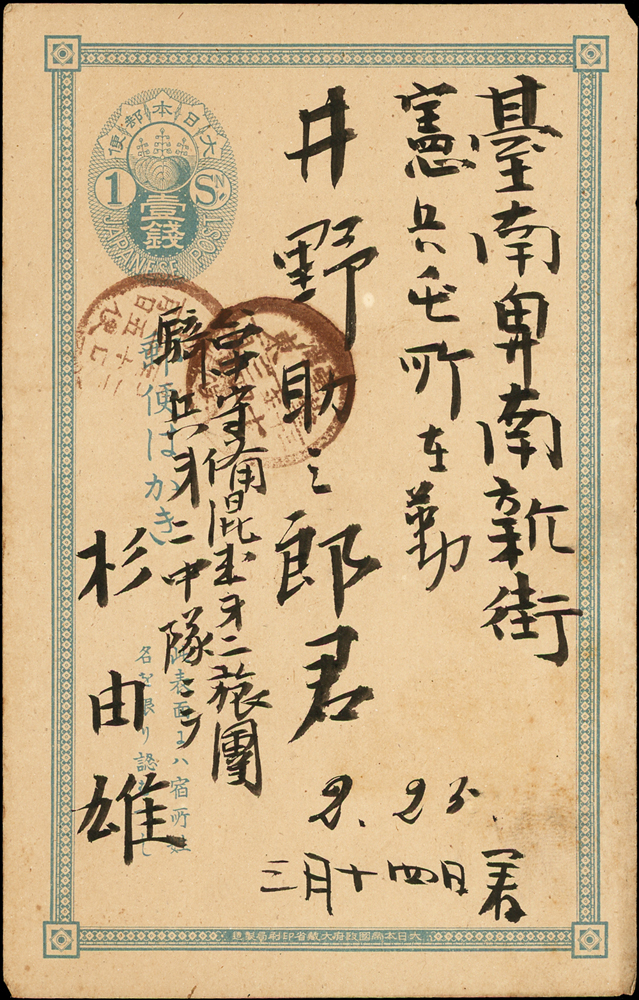 臺南卑南新街
憲兵屯所在勤
井野助之郎君
2. 25.
三月十四日着
守備混成才二旅團
兵才二中隊
杉由雄
大日本郵便
1 S
壹錢
JAPANESE POST
郵便はかき
此表面ニハ宿所姓
名を限り認
大日本帝國政府大藏省印刷局製造